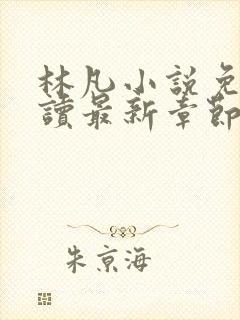 林凡小說免
讀最新章節
朱京海